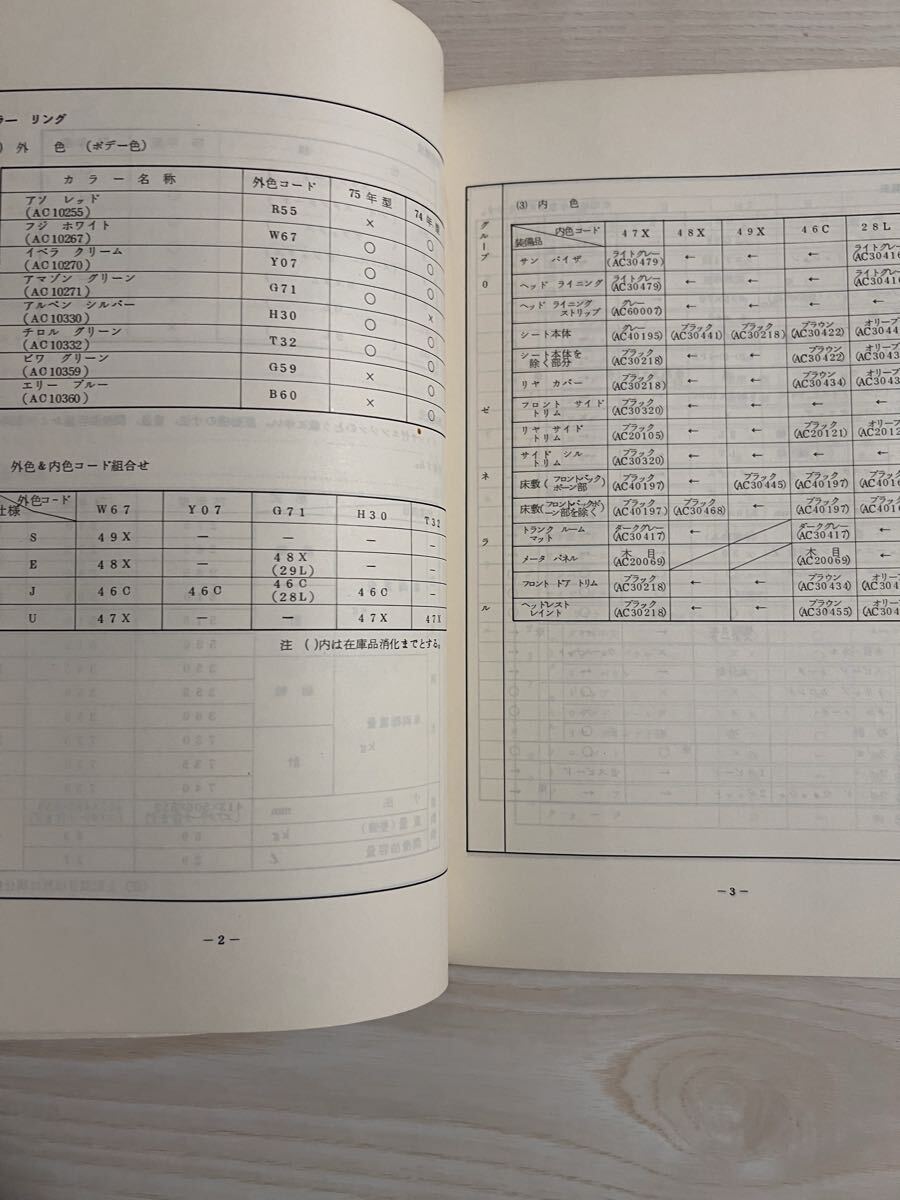 ラー リング
) 外 色 (ボデー色)
カラー名称 外色コード 75年型 74年型
アソ レッド
(AC10255) R55 × ○
フジ ホワイト
(AC10267) W67 ○ ○
イベラ クリーム
(AC10270) Y07 ○ ○
アマゾン グリーン
(AC10271) G71 ○ ○
アルペン シルバー
(AC10330) H30 ○ ×
チロル グリーン
(AC10332) T32 ○ ○
ビワ グリーン
(AC10359) G59 × ○
エリー ブルー
(AC10360) B60 × ○
外色&内色コード組合せ
外色コード
仕様 W67 Y07 G71 H30 T32
S 49X — — — —
E 48X — 48X — —
(29L)
J 46C 46C 46C 46C —
(28L)
U 47X — — 47X 47X
注 ( )内は在庫品消化までとする。
—2—
グループ 0 ゼネラル
(3) 内 色
内色コード
装備品 47X 48X 49X 46C 28L
サン バイザ ライトグレー (AC30479) ← ← ← ライトグレー (AC30416
ヘッド ライニング ライトグレー (AC30479) ← ← ← ライトグレー (AC30416
ヘッド ライニング ストリップ グレー (AC60007) ← ← ← ←
シート本体 グレー (AC40195) ブラック (AC30441) ブラック (AC30218) ブラウン (AC30422) オリーブ (AC3044
シート本体を除く部分 ブラック (AC30218) ← ← ブラウン (AC30422) オリーブ (AC3043
リヤ カバー ブラック (AC30218) ← ← ブラウン (AC30434) オリーブ (AC3044
フロント サイド トリム ブラック (AC30320) ← ← ← ←
リヤ サイド トリム ブラック (AC20105) ← ← ブラック (AC20121) オリーブ (AC2012
サイド シル トリム ブラック (AC30320) ← ← ← ←
床敷 (フロントバックボーン部) ブラック (AC40197) ← ブラック (AC30445) ブラック (AC40197) ブラック (AC4016
床敷 (フロントバックボーン部を除く) ブラック (AC40197) ブラック (AC30468) ← ブラック (AC40197) ブラック (AC4016
トランク ルーム マット ダークグレー (AC30417) ダークグレー (AC30417) ←
メータ パネル 木目 (AC20069) 木目 (AC20069) ←
フロント ドア トリム ブラック (AC30218) ← ← ブラウン (AC30434) オリーブ (AC3043
ヘッドレスト レイント ブラック (AC30218) ← ← ブラウン (AC30455) オリーブ (AC304
—3—